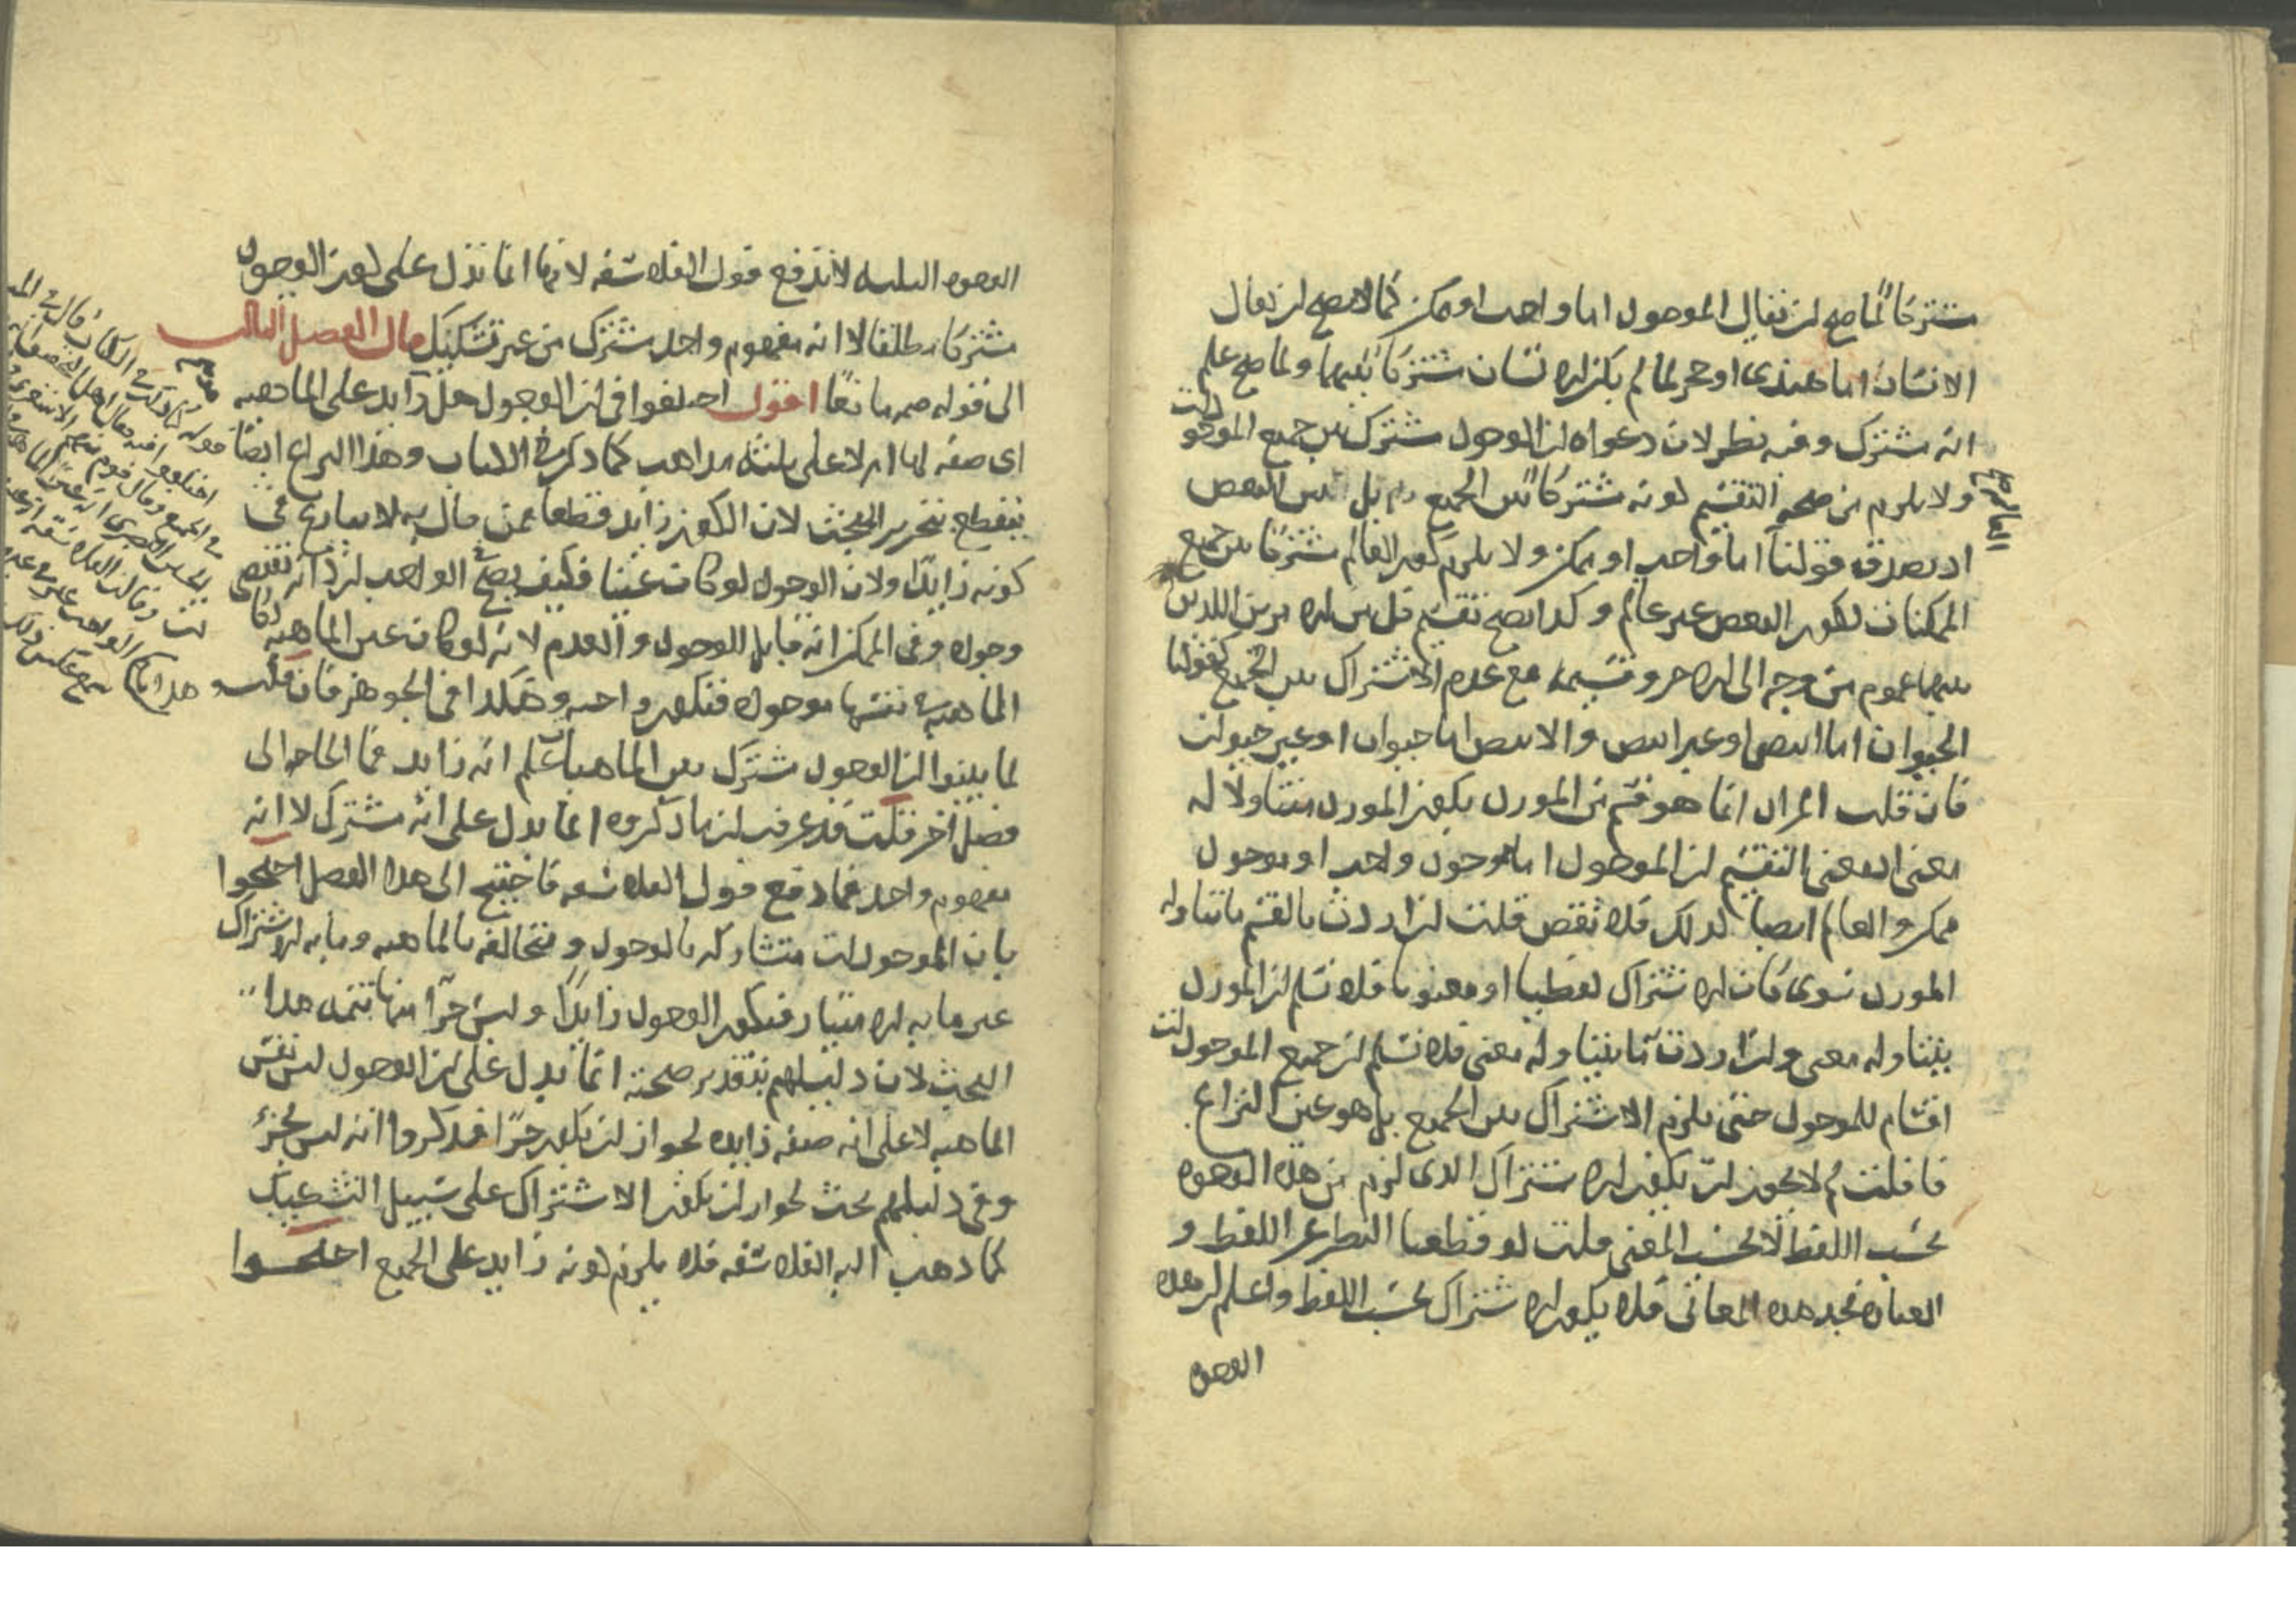 مشتركا لما صح ان يقال الموجود اما واجب او ممكن كما لا يصح ان يقال
الانسان اما هندى او حجر لما لم يكن الانسان مشتركا بينهما ولما صح علم
انه مشترك وفيه نظر لان دعواه ان الوجود مشترك بين جميع الموجودات
ولا يلزم من صحة التقسيم كونه مشتركا بين الجميع بل بين البعض
اذ يصدق قولنا العالم اما واجب او ممكن ولا يلزم كون العالم مشتركا بين جميع
الممكنات لكون البعض غير عالم وكذا يصح تقسيم كل من الامرين اللذين
بينهما عموم من وجه الى الاخر وقسيمه مع عدم الاشتراك بين الجميع كقولنا
الحيوان اما ابيض او غير ابيض والابيض اما حيوان او غير حيوان
فان قلت المراد انما هو قسم من المورد يكون المورد متناولا له
معنى اذ معنى التقسيم ان الموجود اما موجود واجب او موجود
ممكن والعالم ايضا كذلك فلا نقض قلت ان اردت بالقسم ما يتناوله
المورد سوى كان الاشتراك لفظيا او معنويا فلا نسلم ان المورد
يتناوله معنى وان اردت ما يتناوله معنى فلا نسلم ان جميع الموجودات
اقسام للموجود حتى يلزم الاشتراك بين الجميع بل هو عين النزاع
فان قلت لم لا يجوز ان يكون الاشتراك الذى لزم من هذه الوجوه
بحسب اللفظ لا بحسب المعنى قلت لو قطعنا النظر عن اللفظ و
العبارة نجد هذه المعانى فلا يكون الاشتراك بحسب اللفظ واعلم ان هذه
الوجوه
الوجوه الثلثه لا تدفع قول الفلاسفه لانها انما تدل على كون الوجود
مشتركا مطلقا لا انه مفهوم واحد مشترك من غير تشكيك قال الفصل الثالث
الى قوله صح مانعا اقول اختلفوا فى ان الوجود هل زايد على الماهيه
اى صفه لها ام لا على ثلثه مذاهب كما ذكر فى الكتاب وهذا النزاع ايضا
ينقطع بتحرير المبحث لان الكون زايد قطعا فمن قال به لا ينازع فى
كونه زايدا ولان الوجود لو كان عينا فكيف يصح فى الواجب ان ذاته تقتضى
وجوده وفى الممكن انه قابل للوجود والعدم لانه لو كان عين الماهيه لكان
الماهية بنفسها موجوده فتكون واجبه وهكذا فى الجوهر فان قلت
لما بينوا ان الوجود مشترك بين الماهيات علم انه زايد فما الحاجه الى
فصل اخر قلت قد عرفت ان ما ذكروه انما يدل على انه مشترك لا انه
مفهوم واحد فما دفع قول الفلاسفه فاحتيج الى هذا الفصل احتجوا
بان الموجودات متشاركه بالوجود ومتخالفه بالماهيه وما به الاشتراك
غير ما به الامتياز فيكون الوجود زايدا وليس جزا منها تتمه هذا
البحث لان دليلهم بتقدير صحته انما يدل على ان الوجود ليس نفس
الماهيه لا على انه صفه زايده لجواز ان يكون جزا فذكروا انه ليس بجزء
وفى دليلهم بحث لجواز ان يكون الاشتراك على سبيل التشكيك
كما ذهب اليه الفلاسفه فلا يلزم كونه زايد على الجميع احتجوا